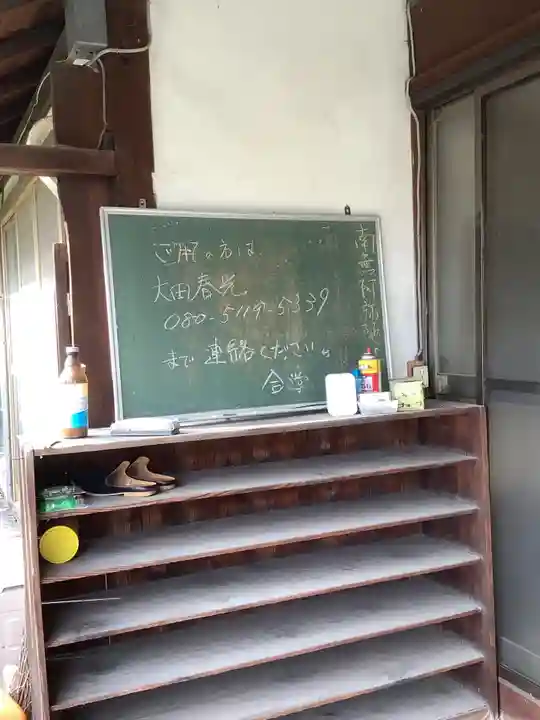 ご用の方は
大田春光
080-5119-5339
まで 連絡ください。
合掌
南無阿弥陀